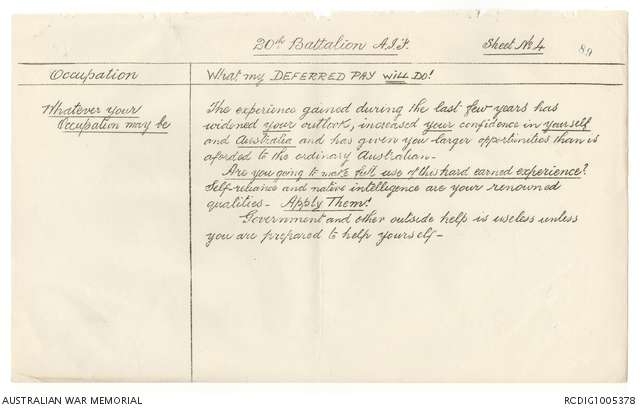 20th Battalion A.I.F. Sheet No 4 89
Occupation What my DEFERRED PAY WILL DO!
Whatever your
Occupation may be
The experience gained during the last few years has
widened your outlook, increased your confidence in yourself
and Australia and has given you larger opportunities than is
afforded to the ordinary Australian-
Are you going to make full use of this hard earned experience?
Self-reliance and native intelligence are your renowned
qualities- Apply Them!
Government and other outside help is useless unless
you are prepared to help yourself-
AUSTRALIAN WAR MEMORIAL RCDIG1005378